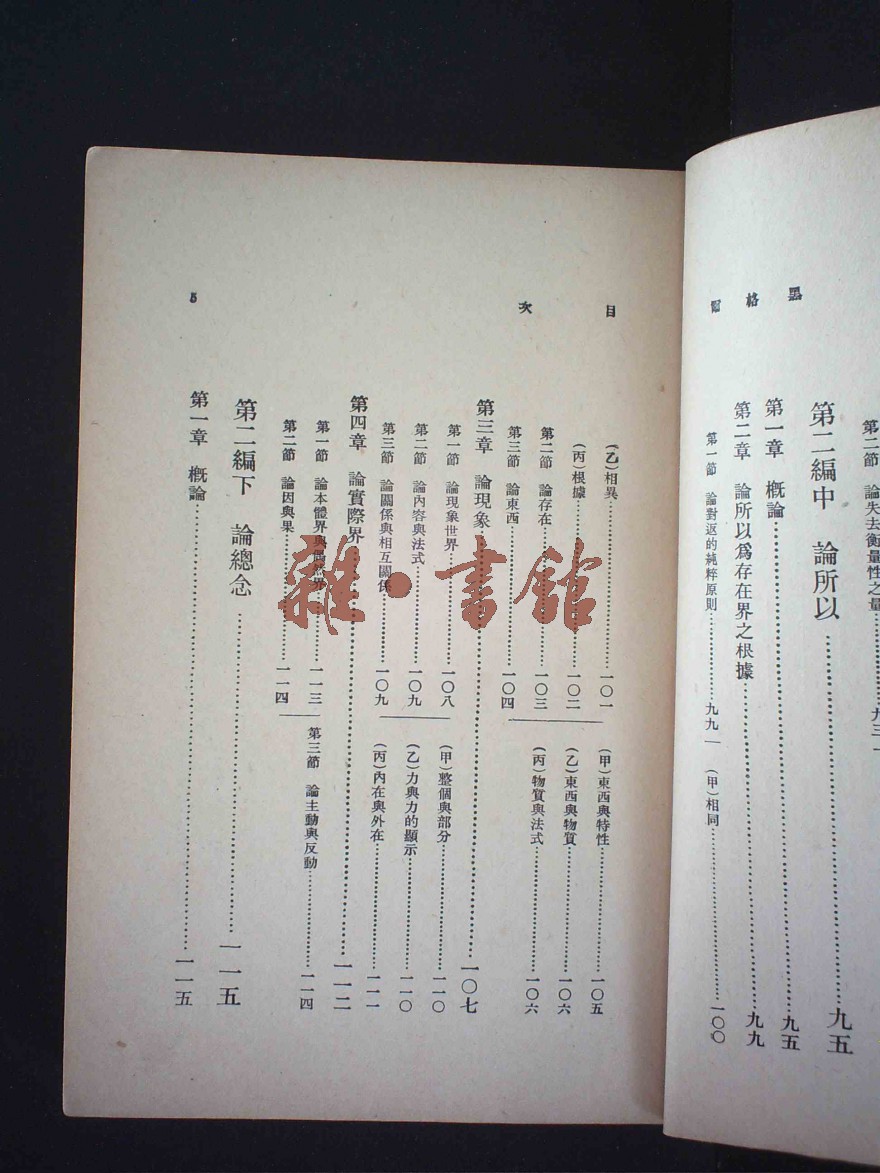 黑格爾
第二節 論失去衡量性之量……九三
第二編中 論所以……九五
第一章 概論……九五
第二章 論所以爲存在界之根據……九九
第一節 論對返的純粹原則……九九
(甲)相同……一〇〇
目次
(乙)相異……一〇一
(丙)根據……一〇二
第二節 論存在……一〇三
第三節 論東西……一〇四
(甲)東西與特性……一〇五
(乙)東西與物質……一〇六
(丙)物質與法式……一〇六
第三章 論現象……一〇七
第一節 論現象世界……一〇八
第二節 論內容與法式……一〇九
第三節 論關係與相互關係……一〇九
(甲)整個與部分……一一〇
(乙)力與力的顯示……一一〇
(丙)內在與外在……一一一
第四章 論實際界……一一二
第一節 論本體界與偶然界……一一三
第二節 論因與果……一一四
第三節 論主動與反動……一一四
第二編下 論總念……一一五
第一章 概論……一一五
5
雜·書館